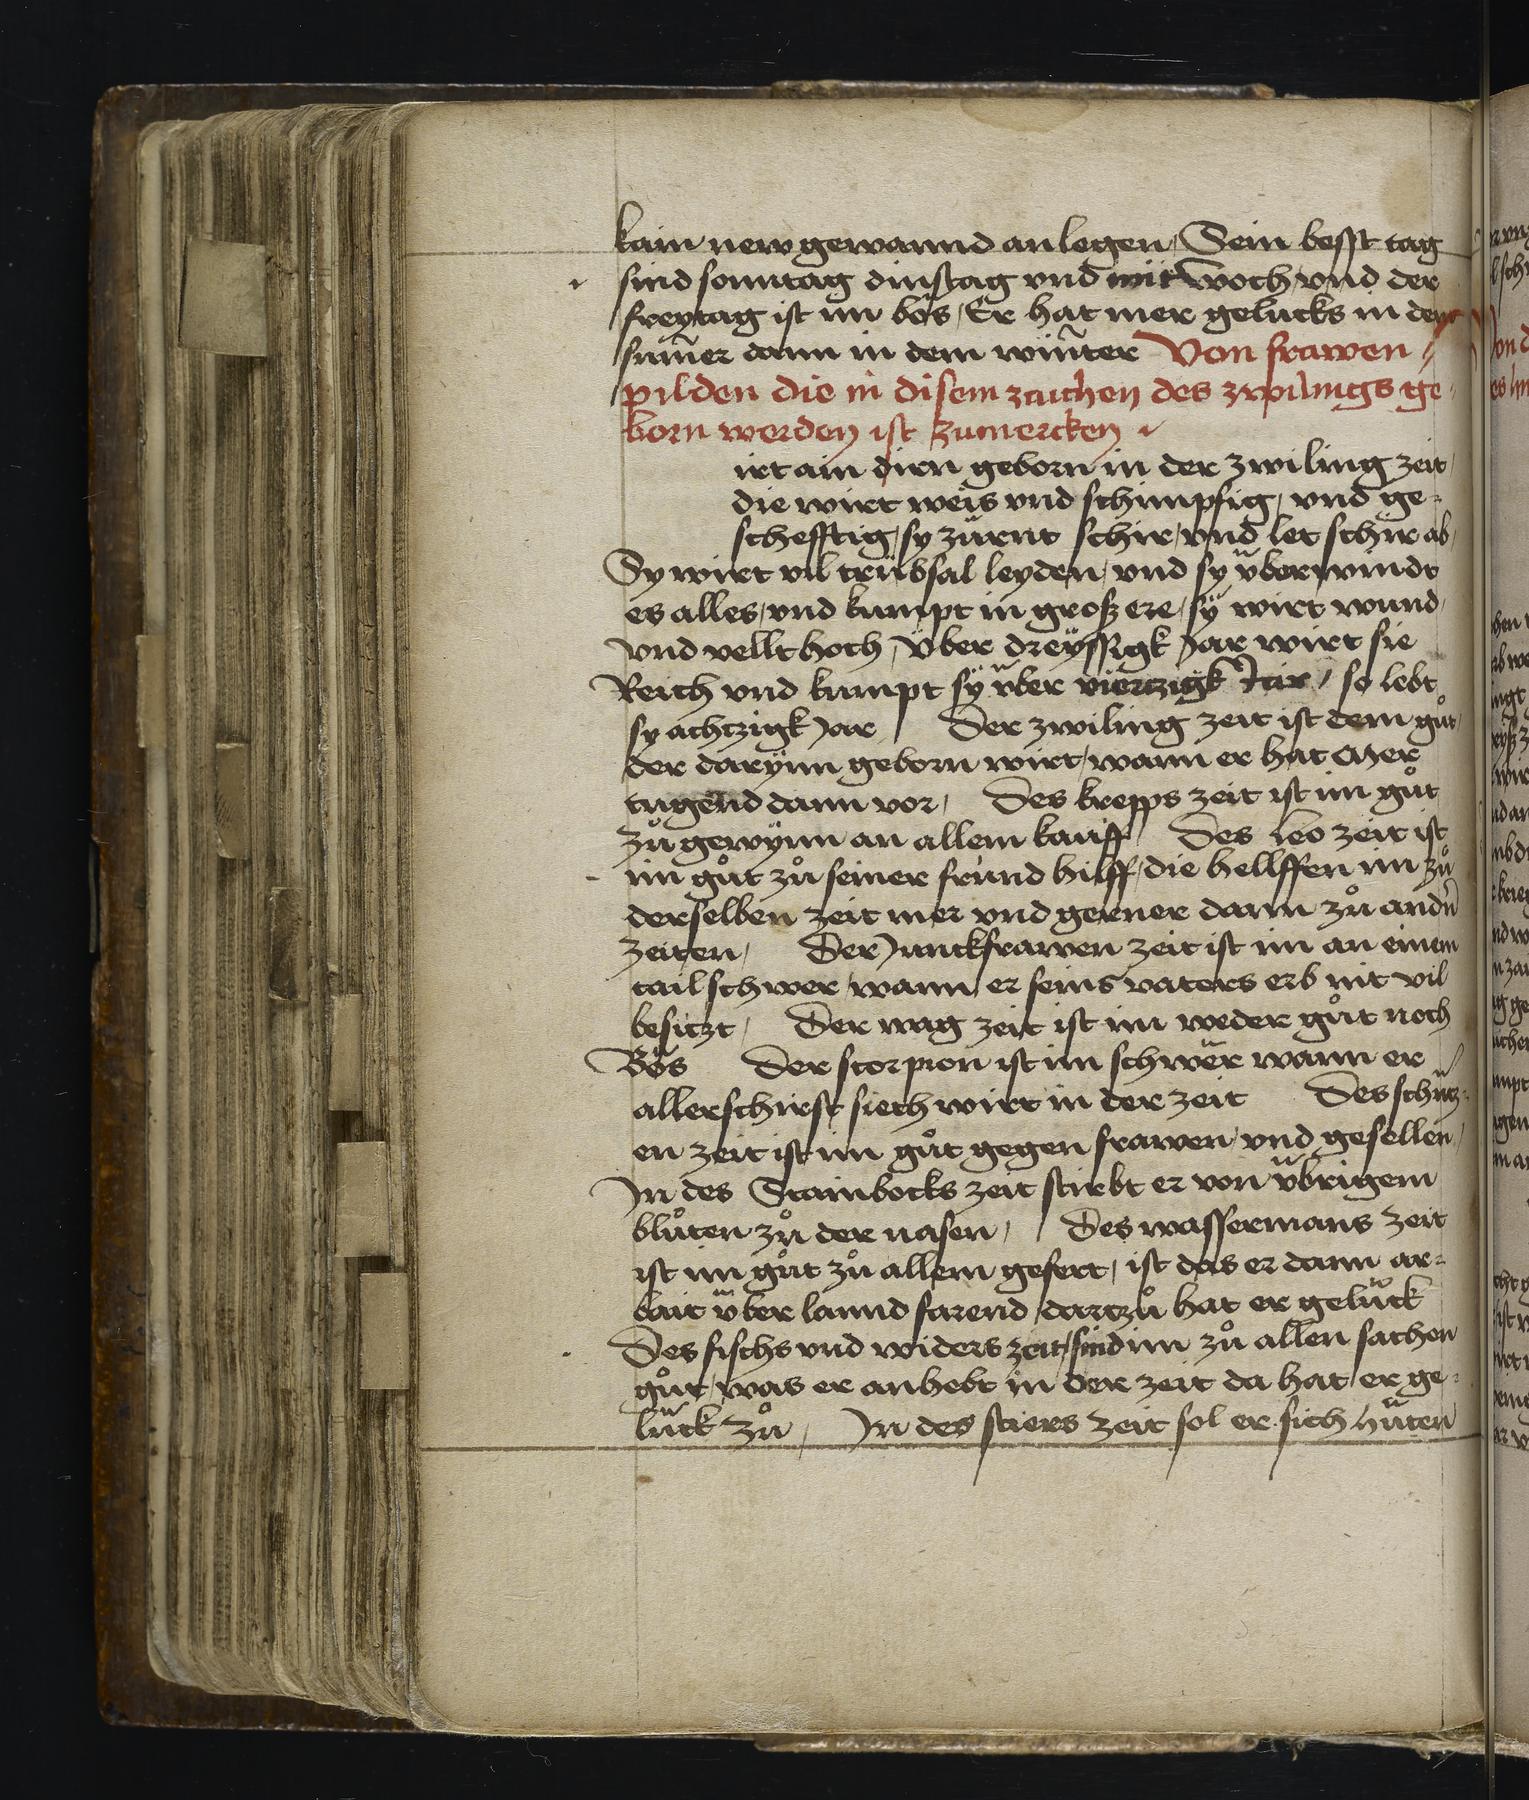 kain new gewannd anlegen / Sein besst tag
sind sonntag dinstag vnd mitwoch / vnd der
freytag ist im bös / Er hat mer gelucks in dem
sum̄er dann in dem win̄ter Von frawen /
pilden die in disem zaichen des zwilings ge
born werden ist zumercken
irt ain dirn geborn in der zwiling zeit /
die wirt weis vnd schimpfig / vnd ge-
schefftig / sy zürnt schir / vnd let schir ab /
Sy wirt vil trübsal leyden / vnd sy überwindt
es alles / vnd kumpt in groß ere / sÿ wirt wund /
vnd vellt hoch / Über dreÿssigk Jar wirt sie
Reich vnd kumpt sÿ über viertzigk Jar / so lebt
sy achtzigk Jar / Der zwiling zeit ist dem gůt /
der darÿnn geborn wirt / wann er hat Mer
tugend dann vor / Des krepps zeit ist im gůt
Zů gewÿnn an allem kauff / Des leo zeit ist
im gůt zů seiner fründ hilff / die hellffen im zů
derselben zeit mer vnd gerner dann zů andn̄
Zeiten / Der Junckfrawen zeit ist im an einem
tail schwer / wann er seins vaters erb nit vil
besitzt / Der wag zeit ist im weder gůt noch
Bös Der scorpion ist im schwer wann er /
allerschirst siech wirt in der zeit Des schütz-
en zeit ist im gůt gegen frawen vnd gesellen /
In des Stainbocks zeit stirbt er von übrigem
blůten zů der nasen / Des wassermans zeit
ist im gůt zů allem gefert / ist das er dann ar-
bait über lannd farend / dartzů hat er gelück
Des fischs vnd widers zeit / sind im zů allen sachen
gůt / was er anhebt in der zeit da hat er ge-
lück zů / In des stiers zeit sol er sich hüten